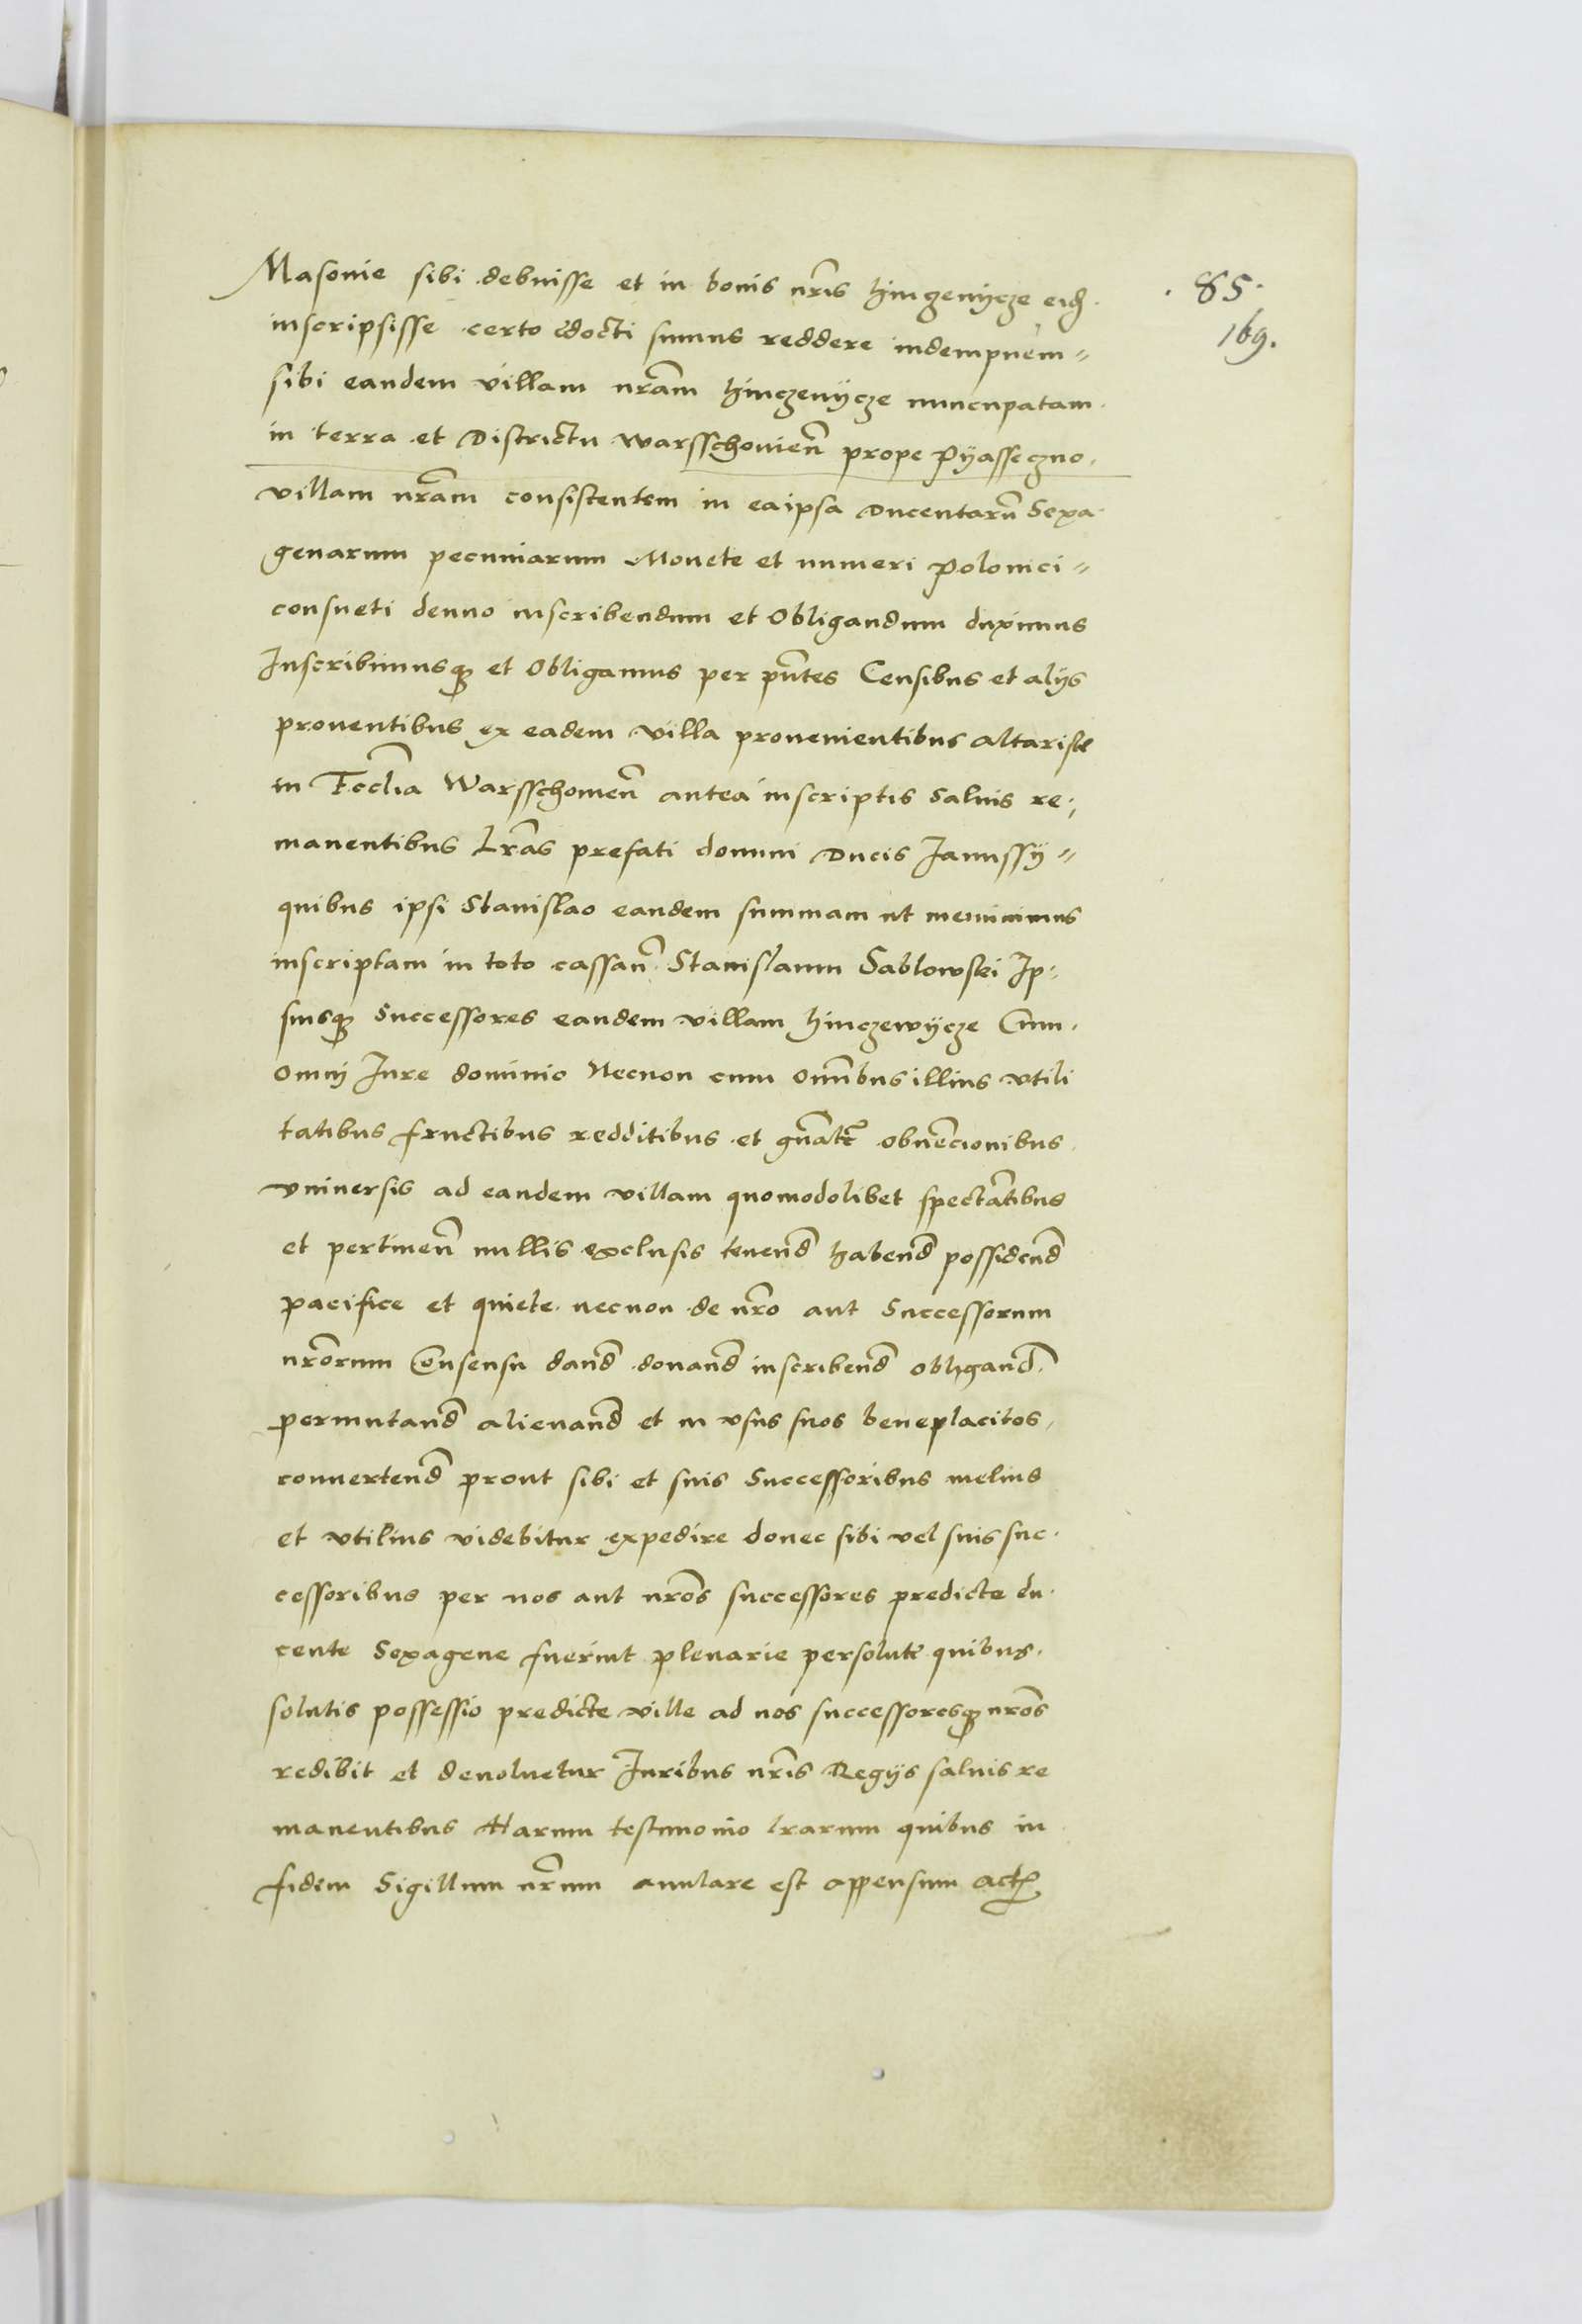 Masovie sibi debuisse et in bonis nr̃is hinczevÿcze eid̃
85.
inscripsisse certo edocti sumus reddere indempnem
169.
sibi eandem villam nr̃am hinczevÿcze nuncupatam
in terra et Districtu Warsschovien̄ prope Pÿasseczno
villam nr̃am consistentem in ea ipsa Ducentarũ Sexa
genarum pecuniarum Monete et numeri polonici
consueti denuo inscribendum et Obligandum duximus
Inscribimusqꝫ et Obligamus per pñtes Censibus et alÿs
proventibus ex eadem villa provenientibus altariste
in Eccl̃ia Warsschovien̄ antea inscriptis Salvis re
manentibus Lr̃as prefati domini Ducis Janussÿ
quibus ipsi Stanislao eandem summam ut meminimus
inscriptam in toto cassan̄ Stanislaum Sablowski Ip
susqꝫ Successores eandem villam hinczewÿcze Cum
omnj Jure dominio Necnon cum omñibus illius vtili
tatibus fructibus redditibus et gñalr̃ obvẽcionibus
vniversis ad eandem villam quomodolibet spectãtibus
et pertinen̄ nullis exclusis tenend̃ habend̃ possidend̃
pacifice et quiete necnon de nr̃o aut Successorum
nr̃orum Consensu dand̃ donand̃ inscribend̃ obligand̃
permutand̃ alienand̃ et in vsus suos beneplacitos
convertend̃ prout sibi et suis Successoribus melius
et vtilius videbitur expedire donec sibi vel suis suc
cessoribus per nos aut nr̃os successores predicte du
cente Sexagene fuerint plenarie persolute quibus
solutis possessio predicte ville ad nos successoresqꝫ nr̃os
redibit et devoluetur Juribus nr̃is Regÿs salvis re
manentibus Harum testimonio lrarum quibus in
fidem Sigillum nr̃um anulare est appensum Act̃